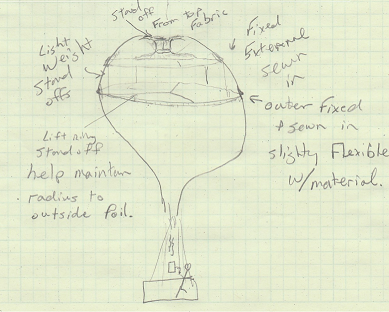 Stand off
From top Fabric
Light
Weight
Stand
offs
Fixed
External
sewn
in
outer Fixed
+ sewn in
slighty Flexible
w/material.
Lift ring
Stand off
help maintan
radius to
outside foil.